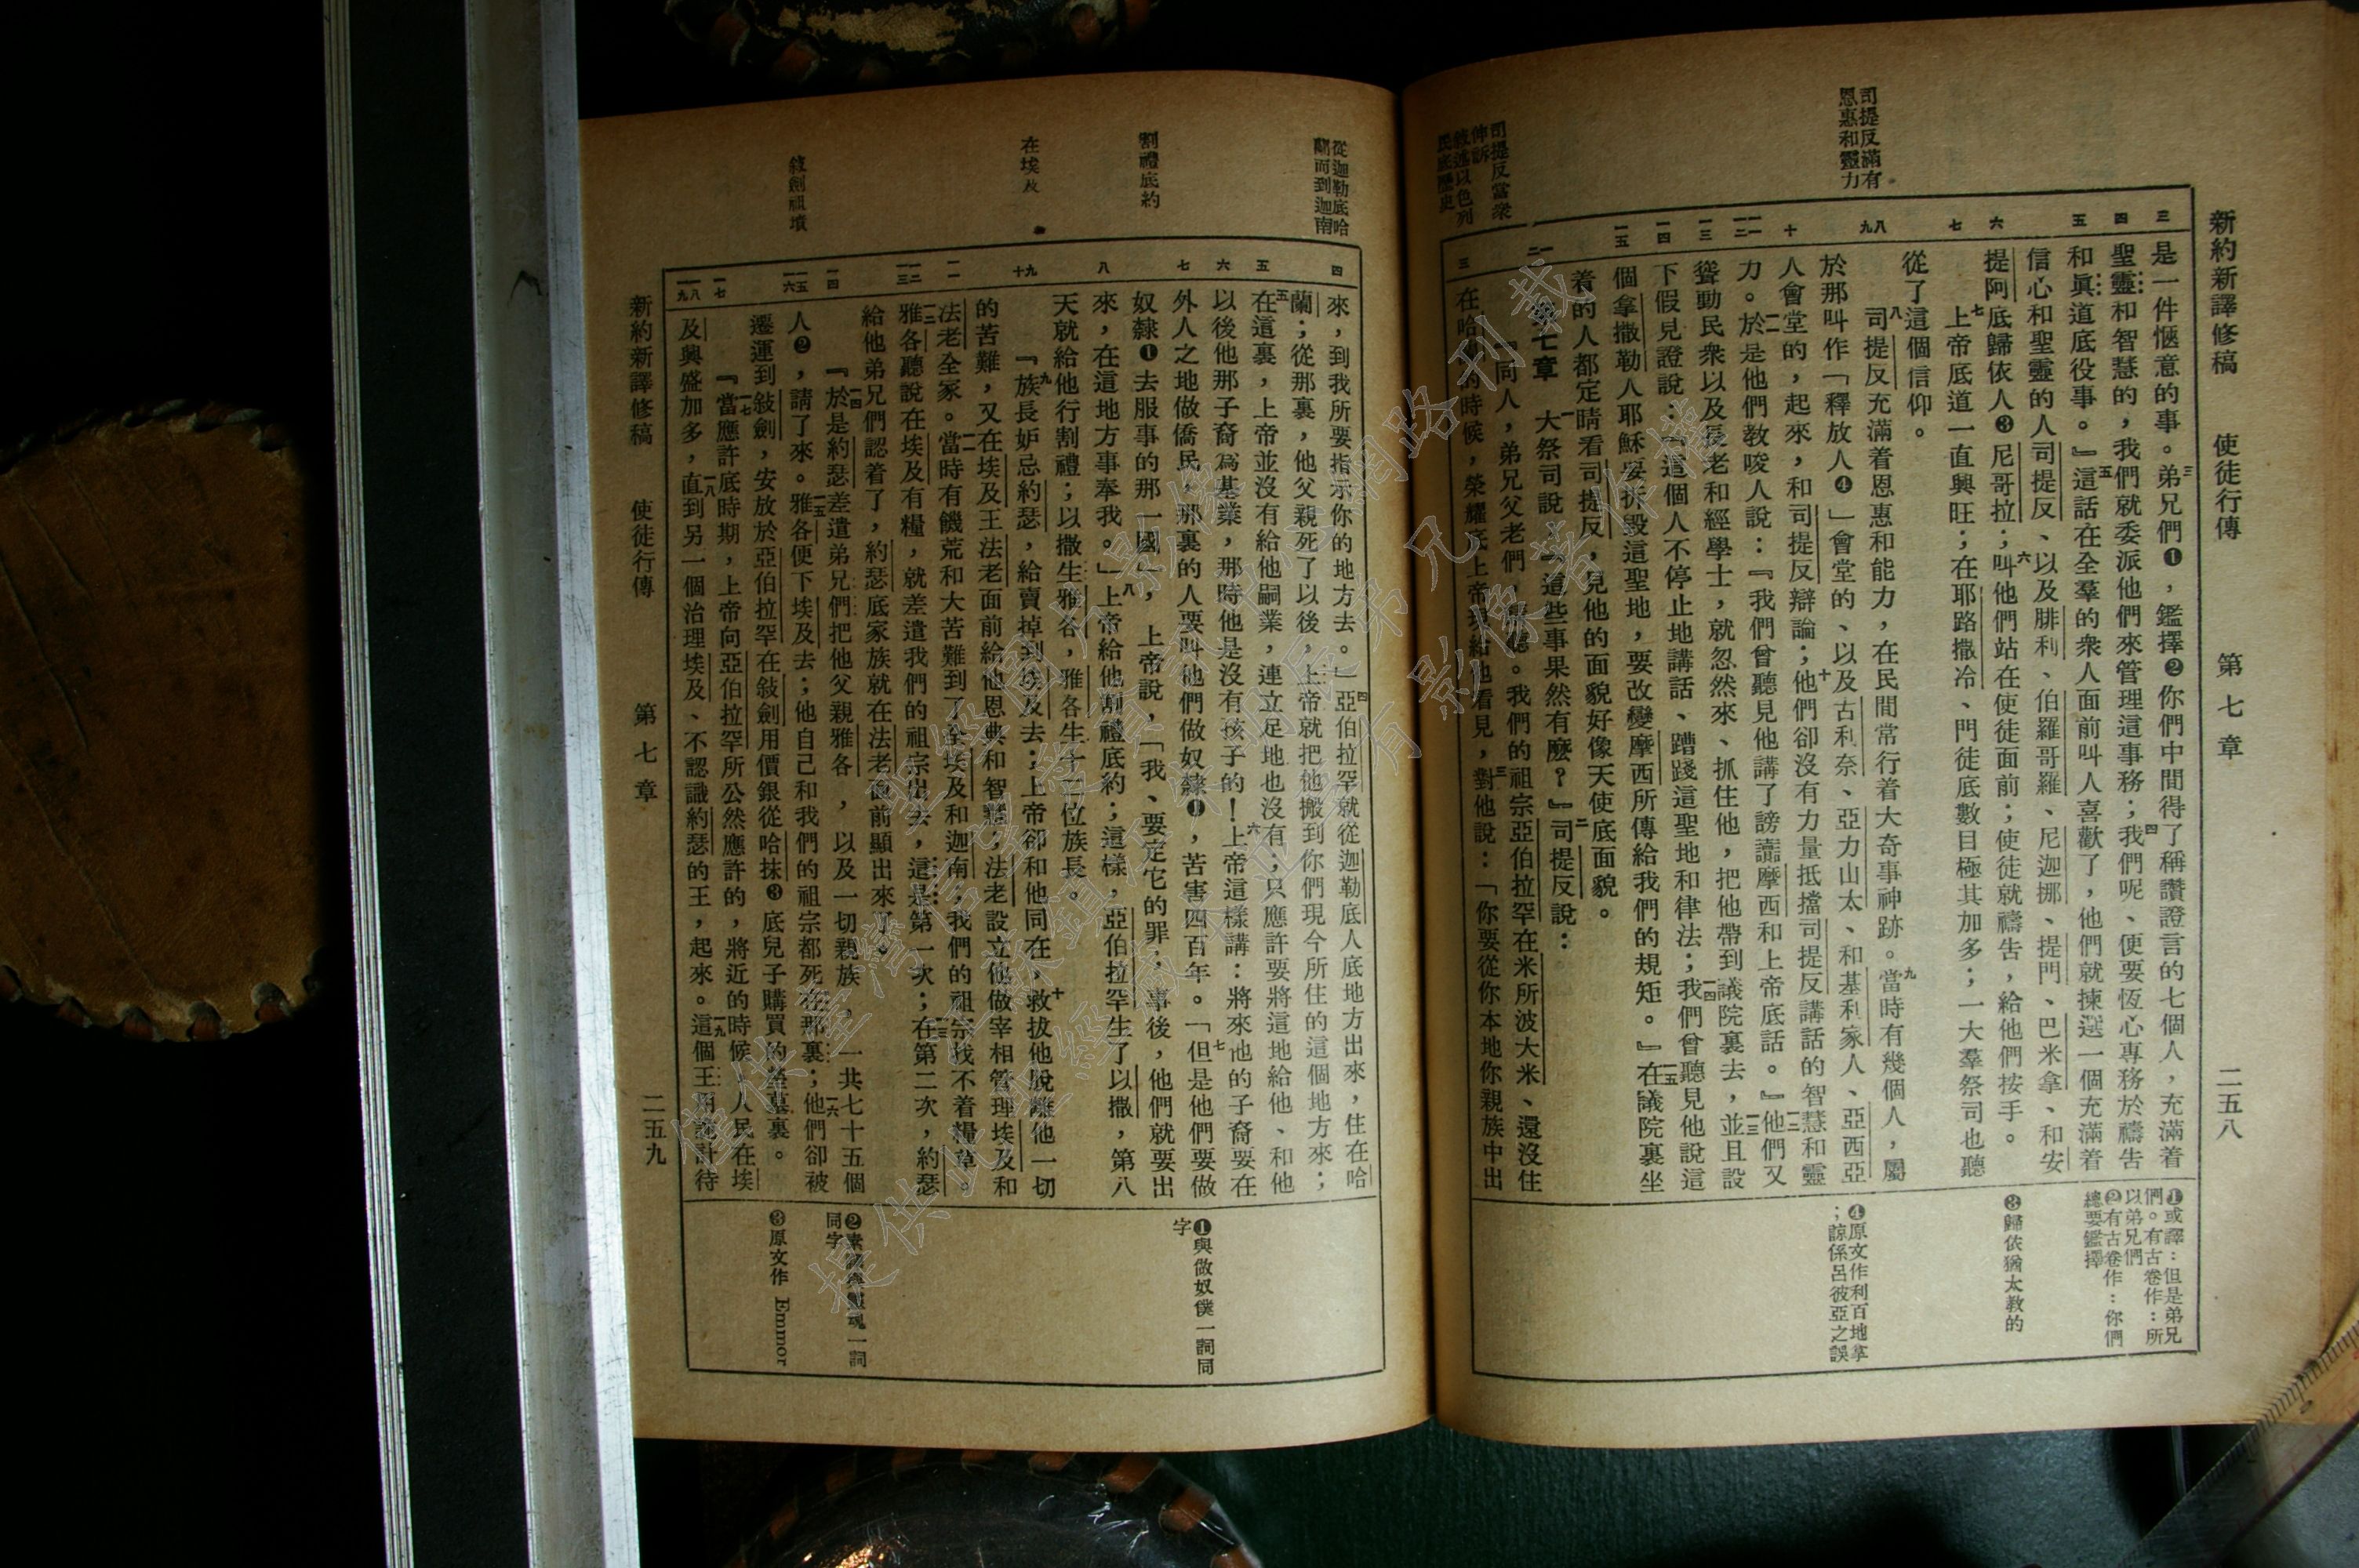 新約新譯修稿　使徒行傳　第七章　二五八
司提反滿有
恩惠和靈力
司提反當衆
伸訴
敘述以色列
民底歷史
三 是一件愜意的事。三弟兄們❶，鑑擇❷你們中間得了稱讚證言的七個人，充滿着
四 聖靈和智慧的，我們就委派他們來管理這事務；四我們呢、便要恆心專務於禱告
五 和眞道底役事。』五這話在全羣的衆人面前叫人喜歡了，他們就揀選一個充滿着
信心和聖靈的人司提反、以及腓利、伯羅哥羅、尼迦挪、提門、巴米拿、和安
六 提阿底歸依人❸尼哥拉；六叫他們站在使徒面前；使徒就禱告，給他們按手。
七 七上帝底道一直興旺；在耶路撒冷、門徒底數目極其加多；一大羣祭司也聽
從了這個信仰。
八九 八司提反充滿着恩惠和能力，在民間常行着大奇事神跡。九當時有幾個人，屬
於那叫作「釋放人❹」會堂的、以及古利奈、亞力山太、和基利家人、亞西亞
十 人會堂的，起來，和司提反辯論；十他們卻沒有力量抵擋司提反講話的智慧和靈
一一一二 力。一一於是他們教唆人說：『我們曾聽見他講了謗讟摩西和上帝底話。』一二他們又
一三 聳動民衆以及長老和經學士，就忽然來、抓住他，把他帶到議院裏去，一三並且設
一四 下假見證說：『這個人不停止地講話、蹧踐這聖地和律法；一四我們曾聽見他說這
一五 個拿撒勒人耶穌要拆毀這聖地，要改變摩西所傳給我們的規矩。』一五在議院裏坐
着的人都定睛看司提反，見他的面貌好像天使底面貌。
一二 第七章　一大祭司說：『這些事果然有麼？』二司提反說：
『同人，弟兄父老們，請聽。我們的祖宗亞伯拉罕在米所波大米、還沒住
三 在哈蘭的時候，榮耀底上帝現給他看見，三對他說：「你要從你本地你親族中出
❶或譯：但是弟兄
們。有古卷作：所
以弟兄們
❷有古卷作：你們
總要鑑擇
❸歸依猶太教的
❹原文作利百地拿
；諒係呂彼亞之誤
從迦勒底哈
蘭而到迦南
割禮底約
在埃及
敘劍祖墳
四 來，到我所要指示你的地方去。」四亞伯拉罕就從迦勒底人底地方出來，住在哈
蘭；從那裏，他父親死了以後，上帝就把他搬到你們現今所住的這個地方來；
五 五在這裏，上帝並沒有給他嗣業，連立足地也沒有；只應許要將這地給他、和他
六 以後他那子裔爲基業，那時他是沒有孩子的！六上帝這樣講：將來他的子裔要在
七 外人之地做僑民，那裏的人要叫他們做奴隸❶，苦害四百年。「七但是他們要做
奴隸❶去服事的那一國」，上帝說，「我、要定它的罪；事後，他們就要出
八 來，在這地方事奉我。」八上帝給他割禮底約；這樣，亞伯拉罕生了以撒，第八
天就給他行割禮；以撒生雅各，雅各生十二位族長。
九十 『九族長妒忌約瑟，給賣掉到埃及去；上帝卻和他同在，十救拔他脫離他一切
的苦難，又在埃及王法老面前給他恩典和智慧，法老設立他做宰相管理埃及和
一一 法老全家。一一當時有饑荒和大苦難到了全埃及和迦南；我們的祖宗找不着糧草。
一二一三 一二雅各聽說在埃及有糧，就差遣我們的祖宗出去，這是第一次；一三在第二次，約瑟
給他弟兄們認着了，約瑟底家族就在法老面前顯出來了。
一四 『一四於是約瑟差遣弟兄們把他父親雅各，以及一切親族，一共七十五個
一五一六 人❷，請了來。一五雅各便下埃及去；他自己和我們的祖宗都死在那裏；一六他們卻被
遷運到敍劍，安放於亞伯拉罕在敍劍用價銀從哈抹❸底兒子購買的墳墓裏。
一七 『一七當應許底時期，上帝向亞伯拉罕所公然應許的，將近的時候，人民在埃
一八一九 及興盛加多，一八直到另一個治理埃及、不認識約瑟的王，起來。一九這個王用詭計待
❶與做奴僕一詞同
字
❷
同字
❸原文作 Emmor
新約新譯修稿　使徒行傳　第七章　二五九